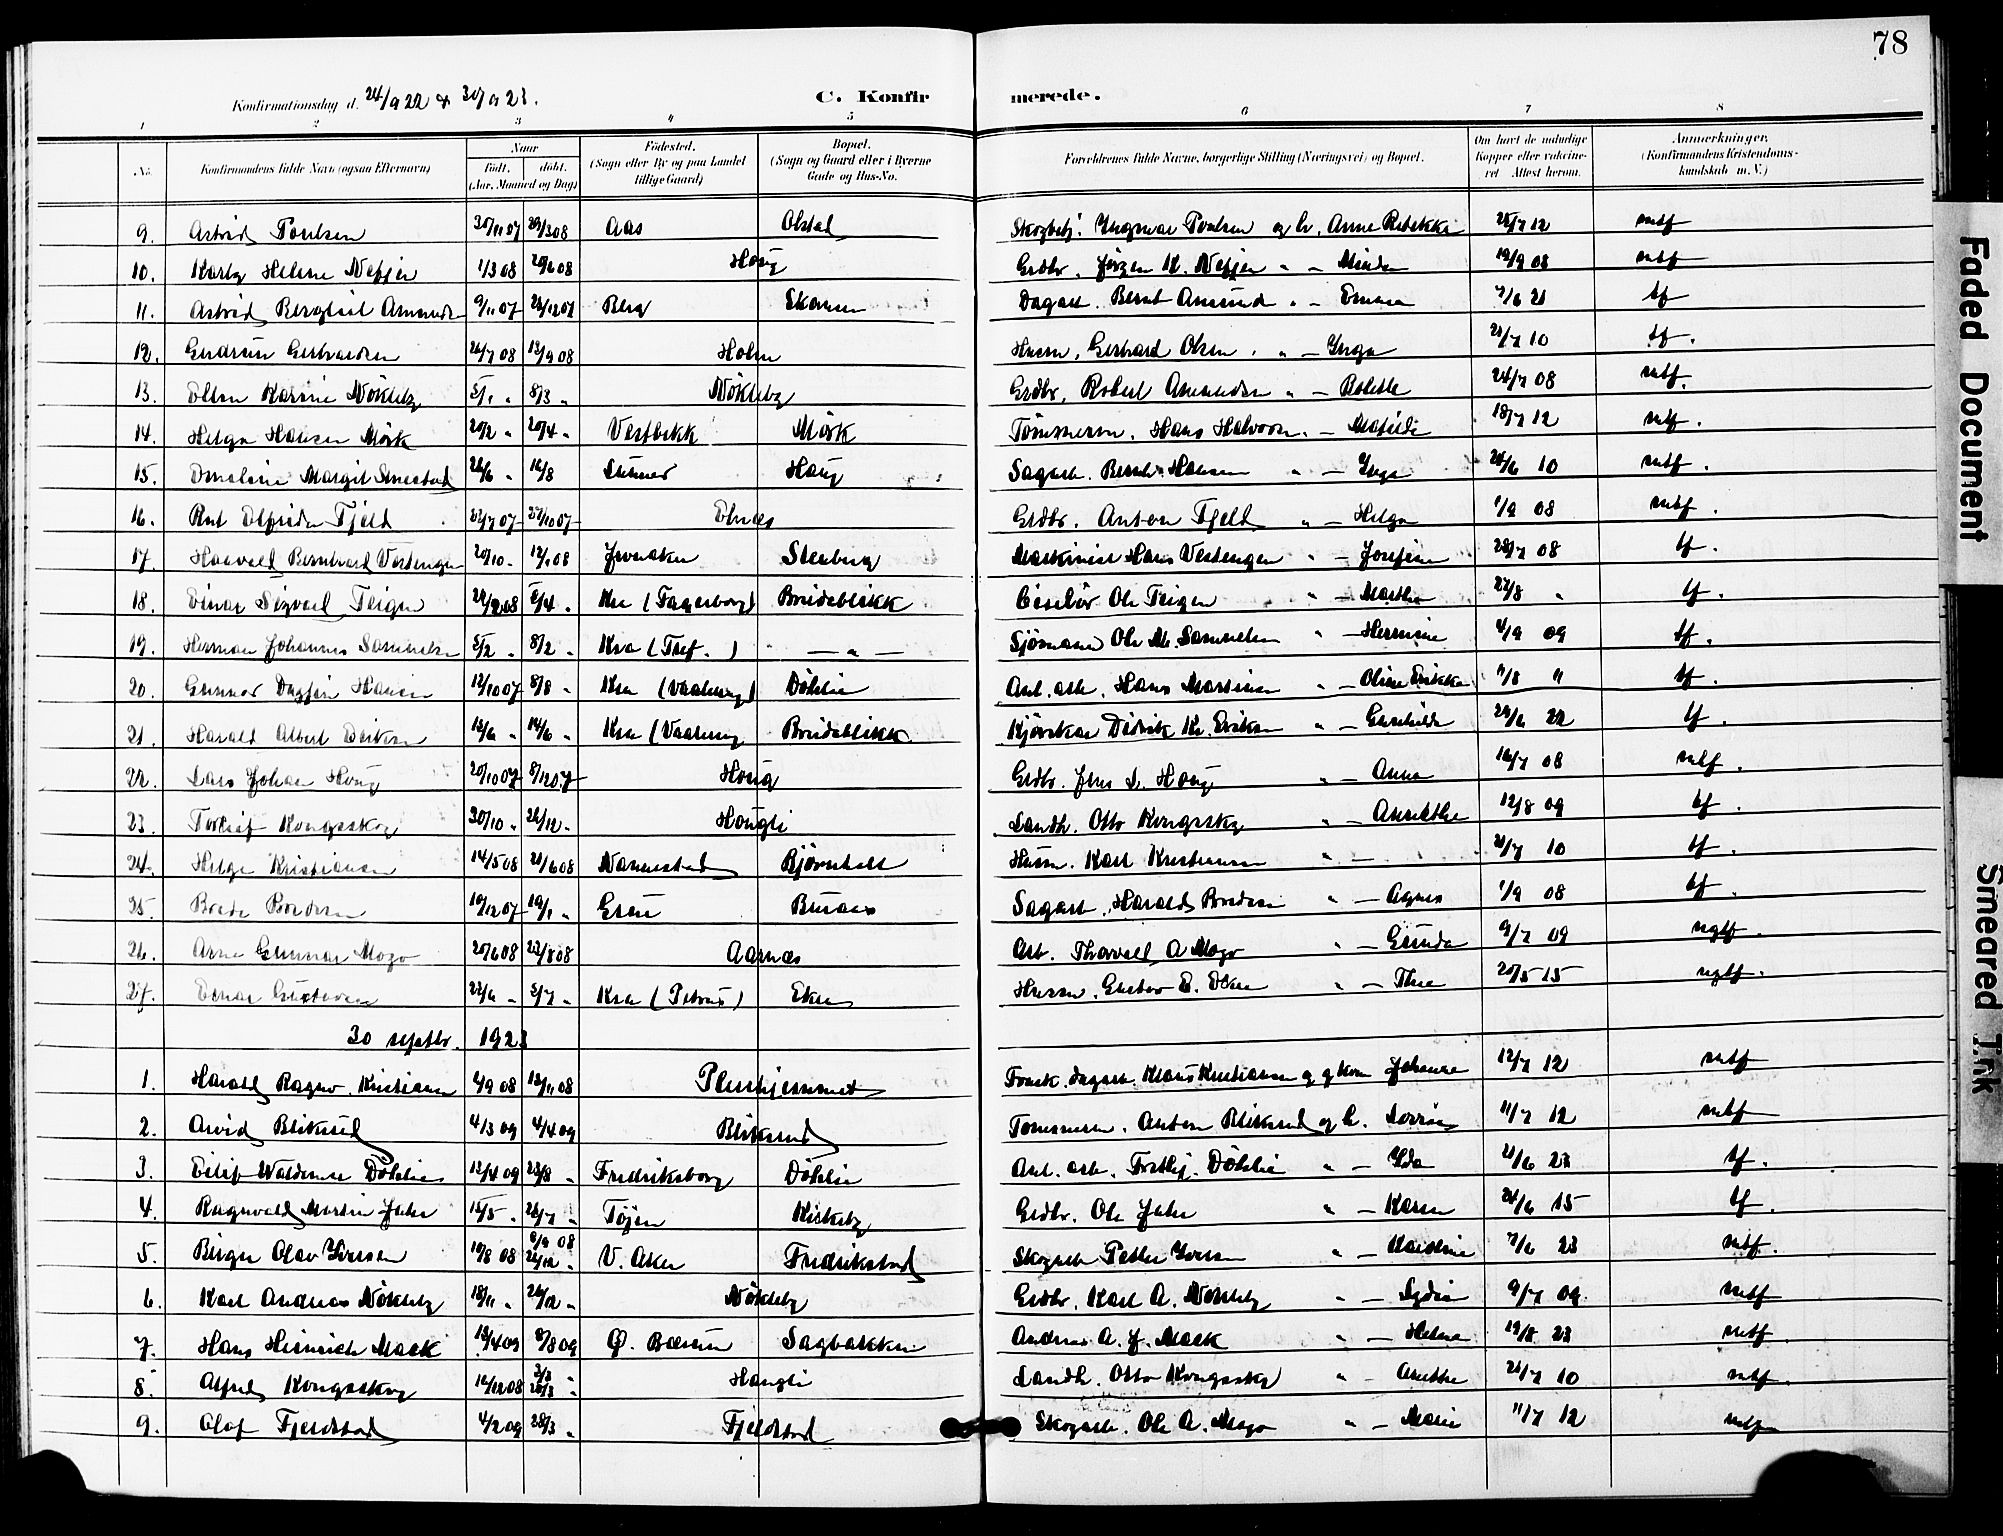 78
Konfirmationsdag d. 24/9 22 & 30/9 23.
C. Konfirmerede.
1 2 3 4 5 6 7 8
No.
Konfirmandens fulde Navn (ogsaa Efternavn)
Naar
Født. døbt.
(Aar, Maaned og Dag)
Fødested.
(Sogn eller By og paa Landet tillige Gaard)
Bopæl.
(Sogn og Gaard eller i Byerne Gade og Hus-No.
Forældrenes fulde Navne, borgerlige Stilling (Næringsvei) og Bopæl.
Om havt de naturlige Kopper eller vaccineret Attest herom.
Anmerkninger.
(Konfirmandens Kristendomskundskab m. V.)
9. Astrid Poulsen 30/11 07 29/3 08 Aas Olstad Skogbetj. Yngvar Poulsen og h. Anne Rebekka 25/7 12 mtf
10. Karly Helene Nepjer 1/3 08 08 Houg Grdbr. Jørgen N. Nepjer " — Minda 19/9 08 mtf
11. Astrid Bergliot Amundsen 9/11 07 26/12 07 Berg Skonsen Dagarb. Bernt Amund " — Emma 7/6 21 tf
12. Gudrun Gerhardsen 26/7 08 13/9 08 Holen Husm. Gerhard Olsen " — Ynga 7 10 tf.
13. Ellen Karine Nökleby 5/1 " 8/3 " Nökleby Grdbr. Robert Amundsen " — Bolette 24/7 08 mtf.
14. Helga Hansen Mörk 20/2 " 20/4 " Vestbekk Mörk Tömmerm. Hans Halvorsen — Matilde 18/7 12 mtf.
15. Margit Smestad 26/6 " 16/8 Lunner Houg Sagarb. Bernt Hansen " — Ynga 6 10 mtf.
16. Rut Elfrida Fjeld 22/7 07 27/10 07 Elnæs Grdbr. Anton Fjeld " — Helga 1/9 08 mtf.
17. Haavald Bernhard Vestengen 20/10 " 12/1 08 Jevnaker Stenberg Maskinist Hans Vestengen " — Josefine 28/7 08 tf.
18. Einar Sigvart Teigen 2 08 5/4 " Kra (Fagerborg) Breidablikk Ciselör Ole Teigen " — Marthe 27/8 " tf.
19. Herman Johannes Samuelsen 5/2 " 8/2 " Kra (Tref.) — " — Sjømann Ole M. Samuelsen " — Hermine 4/9 09 tf.
20. Gunnar Dagfin Hansen 12/10 07 8/8 " Kra (Vaalereng) Döhlie Anl. arb. Hans Martinsen " — Oline Erikka 7/8 " tf.
21. Harald Albert Eriksen 12/6 " 14/6 " Kra (Vaalereng Breidablikk Kjørekar Didrik Kr. Eriksen " — Gunhilda 29/6 22 tf.
22. Lars Johan Houg 20/10 07 8/12 07 Houg Grdbr. Jens L. Houg " — Anna 16/7 08 mtf.
23. Torleif Kongsskog 30/10 " 26/12 " Hougli Landh. Otto Kongsskog " — Anrethe 12/8 09 tf.
24. Helge Kristiansen 14/5 08 21/6 08 Nannestad Bjørnholt Husm. Karl Kristiansen " — 7 10 tf.
25. Brede Bredesen 19/12 07 19/1 " Grue Sagarb. Harald Bredesen " — Agnes 1/9 08 tf.
26. Arne Gunnar Mogo 20/6 08 23/8 08 Aarnæs Arb. Thorvall A Mogo " — Gunda 9/7 09 mgtf.
27. Einar Gustavsen 22/6 " 5/7 " Kra (Petrus) Eken Husm. Gustav E. Eken " — Thea 20/5 15 mgtf.
30 septbr. 1923
1. Harald Ragnv. Kristiansen 4/9 08 15/11 08 Pleiehjemmet Forsk. dagarb. Klaus Kristiansen og g. kon Johanne 12/7 12 mtf
2. Arvid Bliksrud 4/3 09 4/4 09 Bliksrud Tømmerm. Anton Bliksrud og h. Lovise 11/7 12 mtf
3. Eilif Waldemar Döhlie 12/4 09 23/8 " Fredriksborg Döhlie Anl. arb. Frithj. Döhlie " — Yda 21/6 23 tf.
4. Ragnvald Martin Juhr 15/5 " 26/7 " Töjen Kirkeby Grdbr. Ole Juhr " — Karen 24/6 15 tf.
5. Birger Olav Iversen 19/8 08 6/9 08 26/12 " V. Aker Fredrikstad Skogarb. Petter Iversen " — Karoline 7/6 23 mtf.
6. Karl Andreas Nökleby 18/11 " 26/12 " Nökleby Grdbr. Karl A. Nökleby " — Lydia 9/7 09 mtf
7. Hans Heinrich Maack 13/4 09 8/8 09 Ö. Bærum Sagbakken Andreas A. J. Maack " — Helma 19/8 23 mtf.
8. Alfred Kongsskog 16/12 08 28/3 " Hougli Landh. Otto Kongsskog " — Anethe 21/7 10 mtf.
9. Olaf Fjeldstad 4/2 09 28/3 " Fjeldstad Skogarb. Ole A. Mogo " — Marie 11/7 12 mtf
Faded Document
Smeared Ink